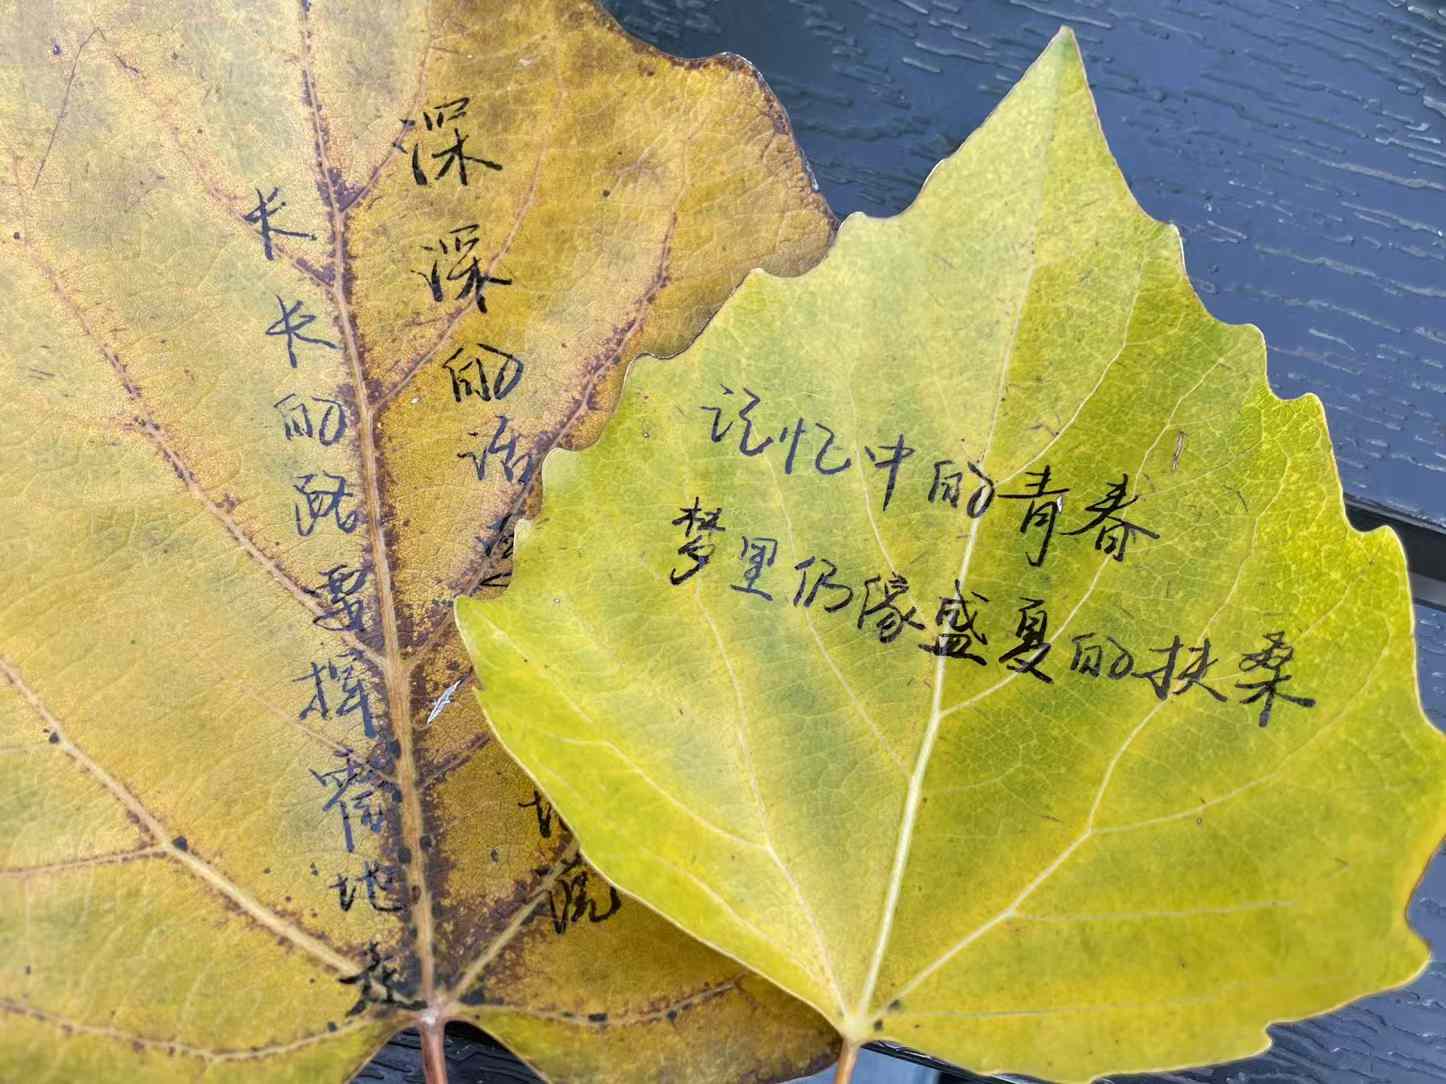 深深的话要浅浅地说
长长的路要挥霍地走
记忆中的青春
梦里仍像盛夏的扶桑